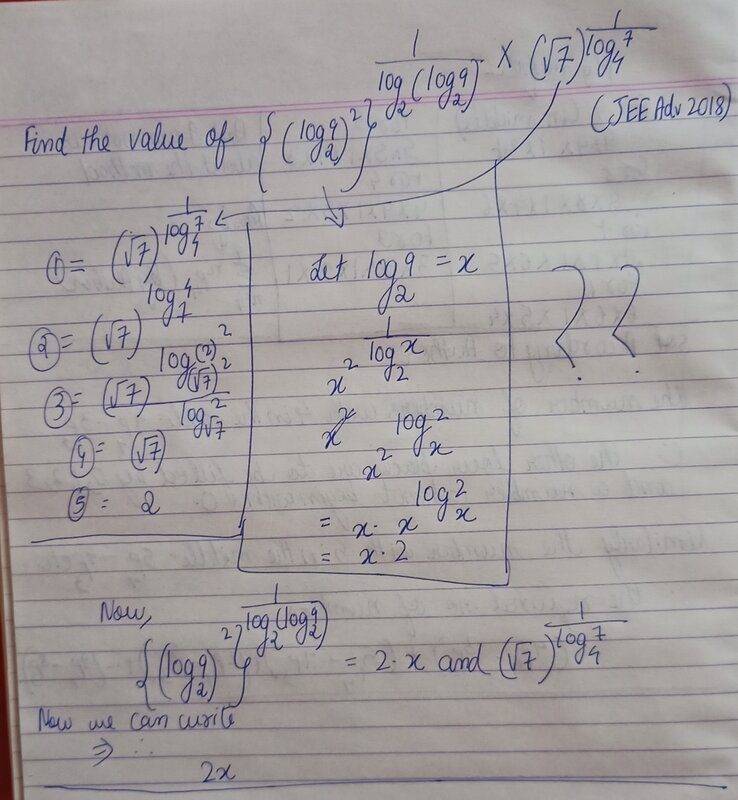 Find the value of {(log₂9)²}^(1/log₂(log₂9)) × (√7)^(1/log₄7)
(JEE Adv 2018)
① = (√7)^(1/log₄7)
② = (√7)^(log₇4)
③ = (√7)^(log_(√7)²(2)²)
④ = (√7)^(log_√7 2)
⑤ = 2
Let log₂9 = x
x²^(1/log₂x)
x²^(logₓ2)
= x · x^(logₓ2)
= x · 2
? ?
Now,
{(log₂9)²}^(1/log₂(log₂9)) = 2 · x and (√7)^(1/log₄7)
Now we can write
⇒ ∴
2x